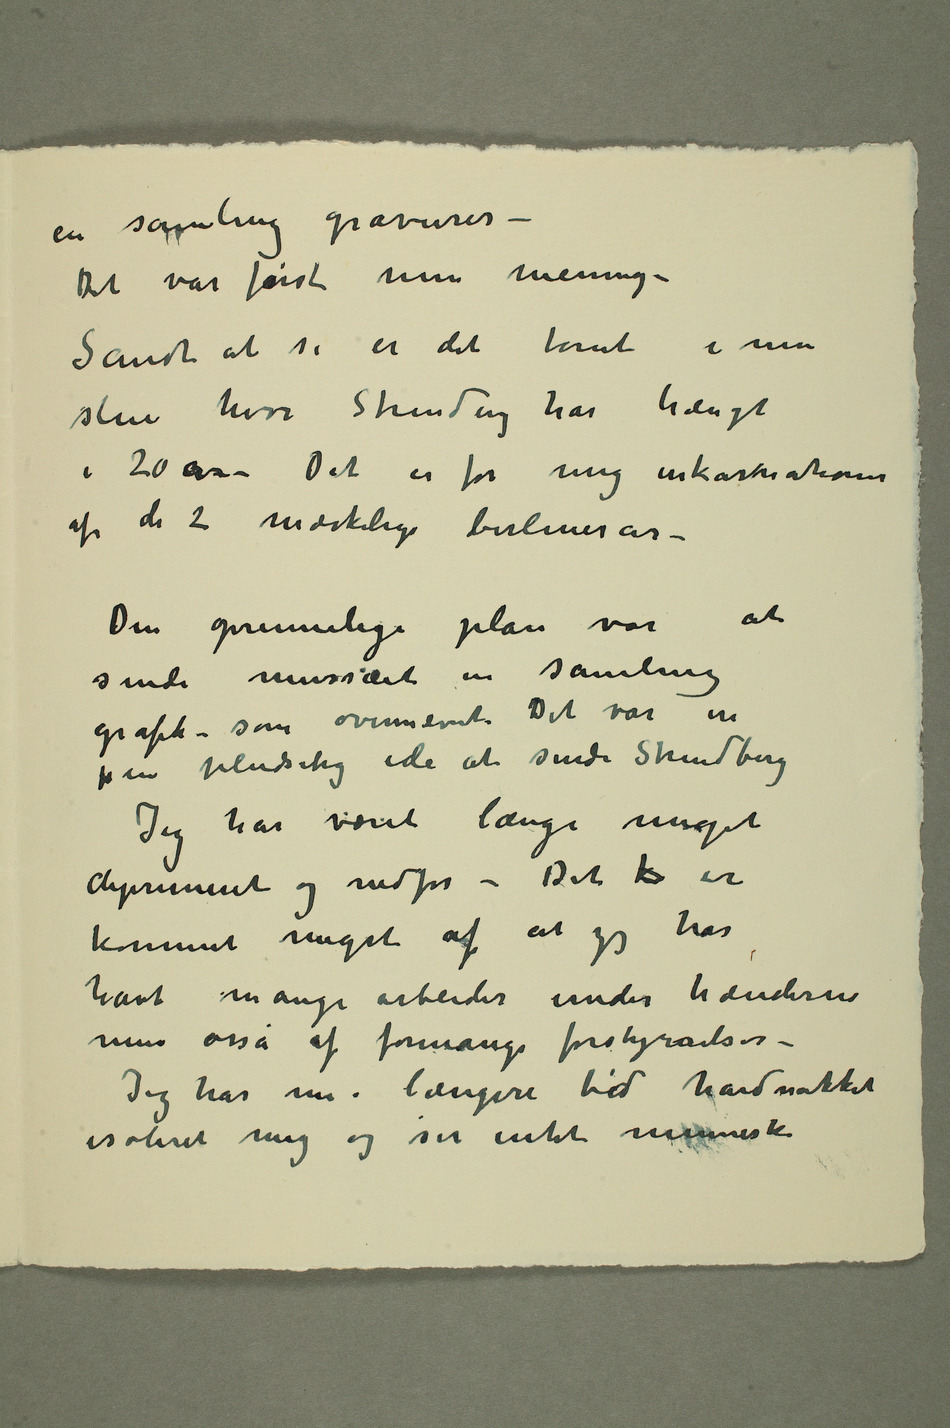 en samling gravurer –
Det var først min mening –
Sandt at si er det tomt i min
stue hvor Strindberg har hængt
i 20 år – Det er for mig inkarnationen
af de 2 mærkelige berlinerår –
Den oprinnelige plan var at
sende musseet en samling
grafik – som ovennævnt Det var en
en pludselig ide at sende Strindberg
Jeg har været længe meget
deprimeret og nedfor – Det k er
kommet meget af at jeg har
havt mange arbeider under hænderne
men også af formange forstyrrelser –
Jeg har nu i længere tid hardnakket
isoleret mig og ser intet menneske